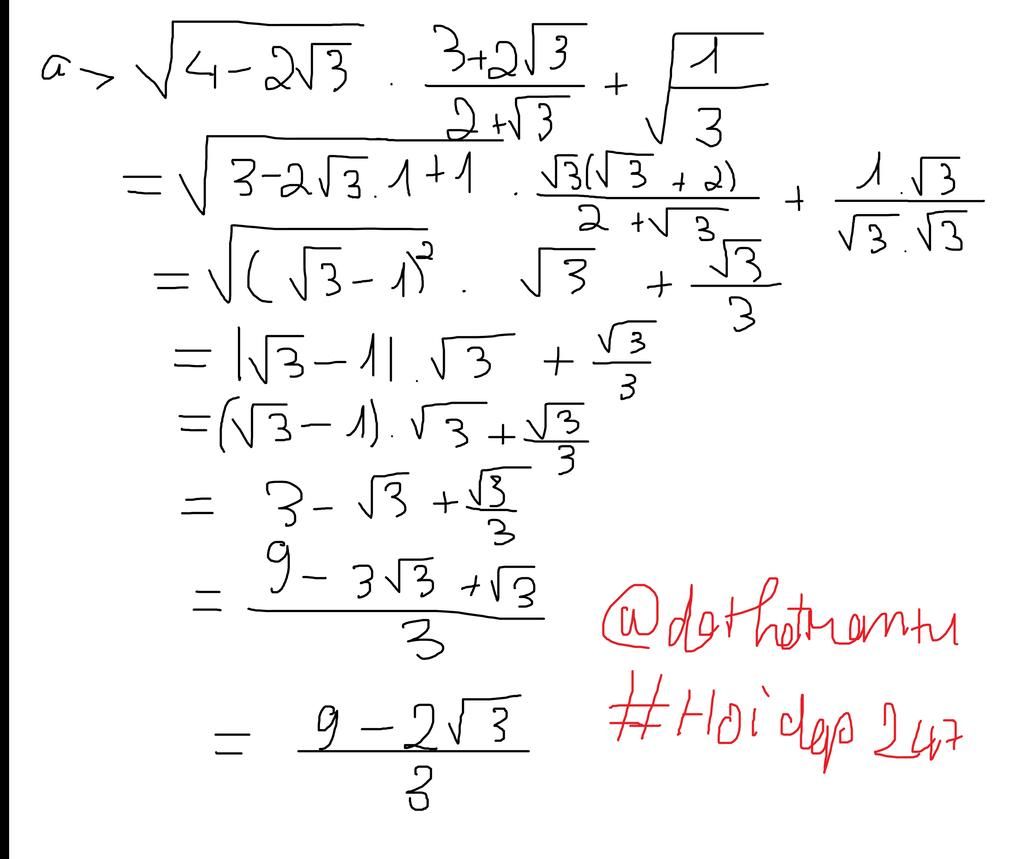 a> √(4-2√3) . (3+2√3)/(2+√3) + √(1/3)
= √(3-2√3.1+1) . (√3(√3+2))/(2+√3) + (1.√3)/(√3.√3)
= √((√3-1)²) . √3 + √3/3
= |√3-1| . √3 + √3/3
= (√3-1) . √3 + √3/3
= 3 - √3 + √3/3
= (9-3√3+√3)/3
= (9-2√3)/3
#Hoidap247